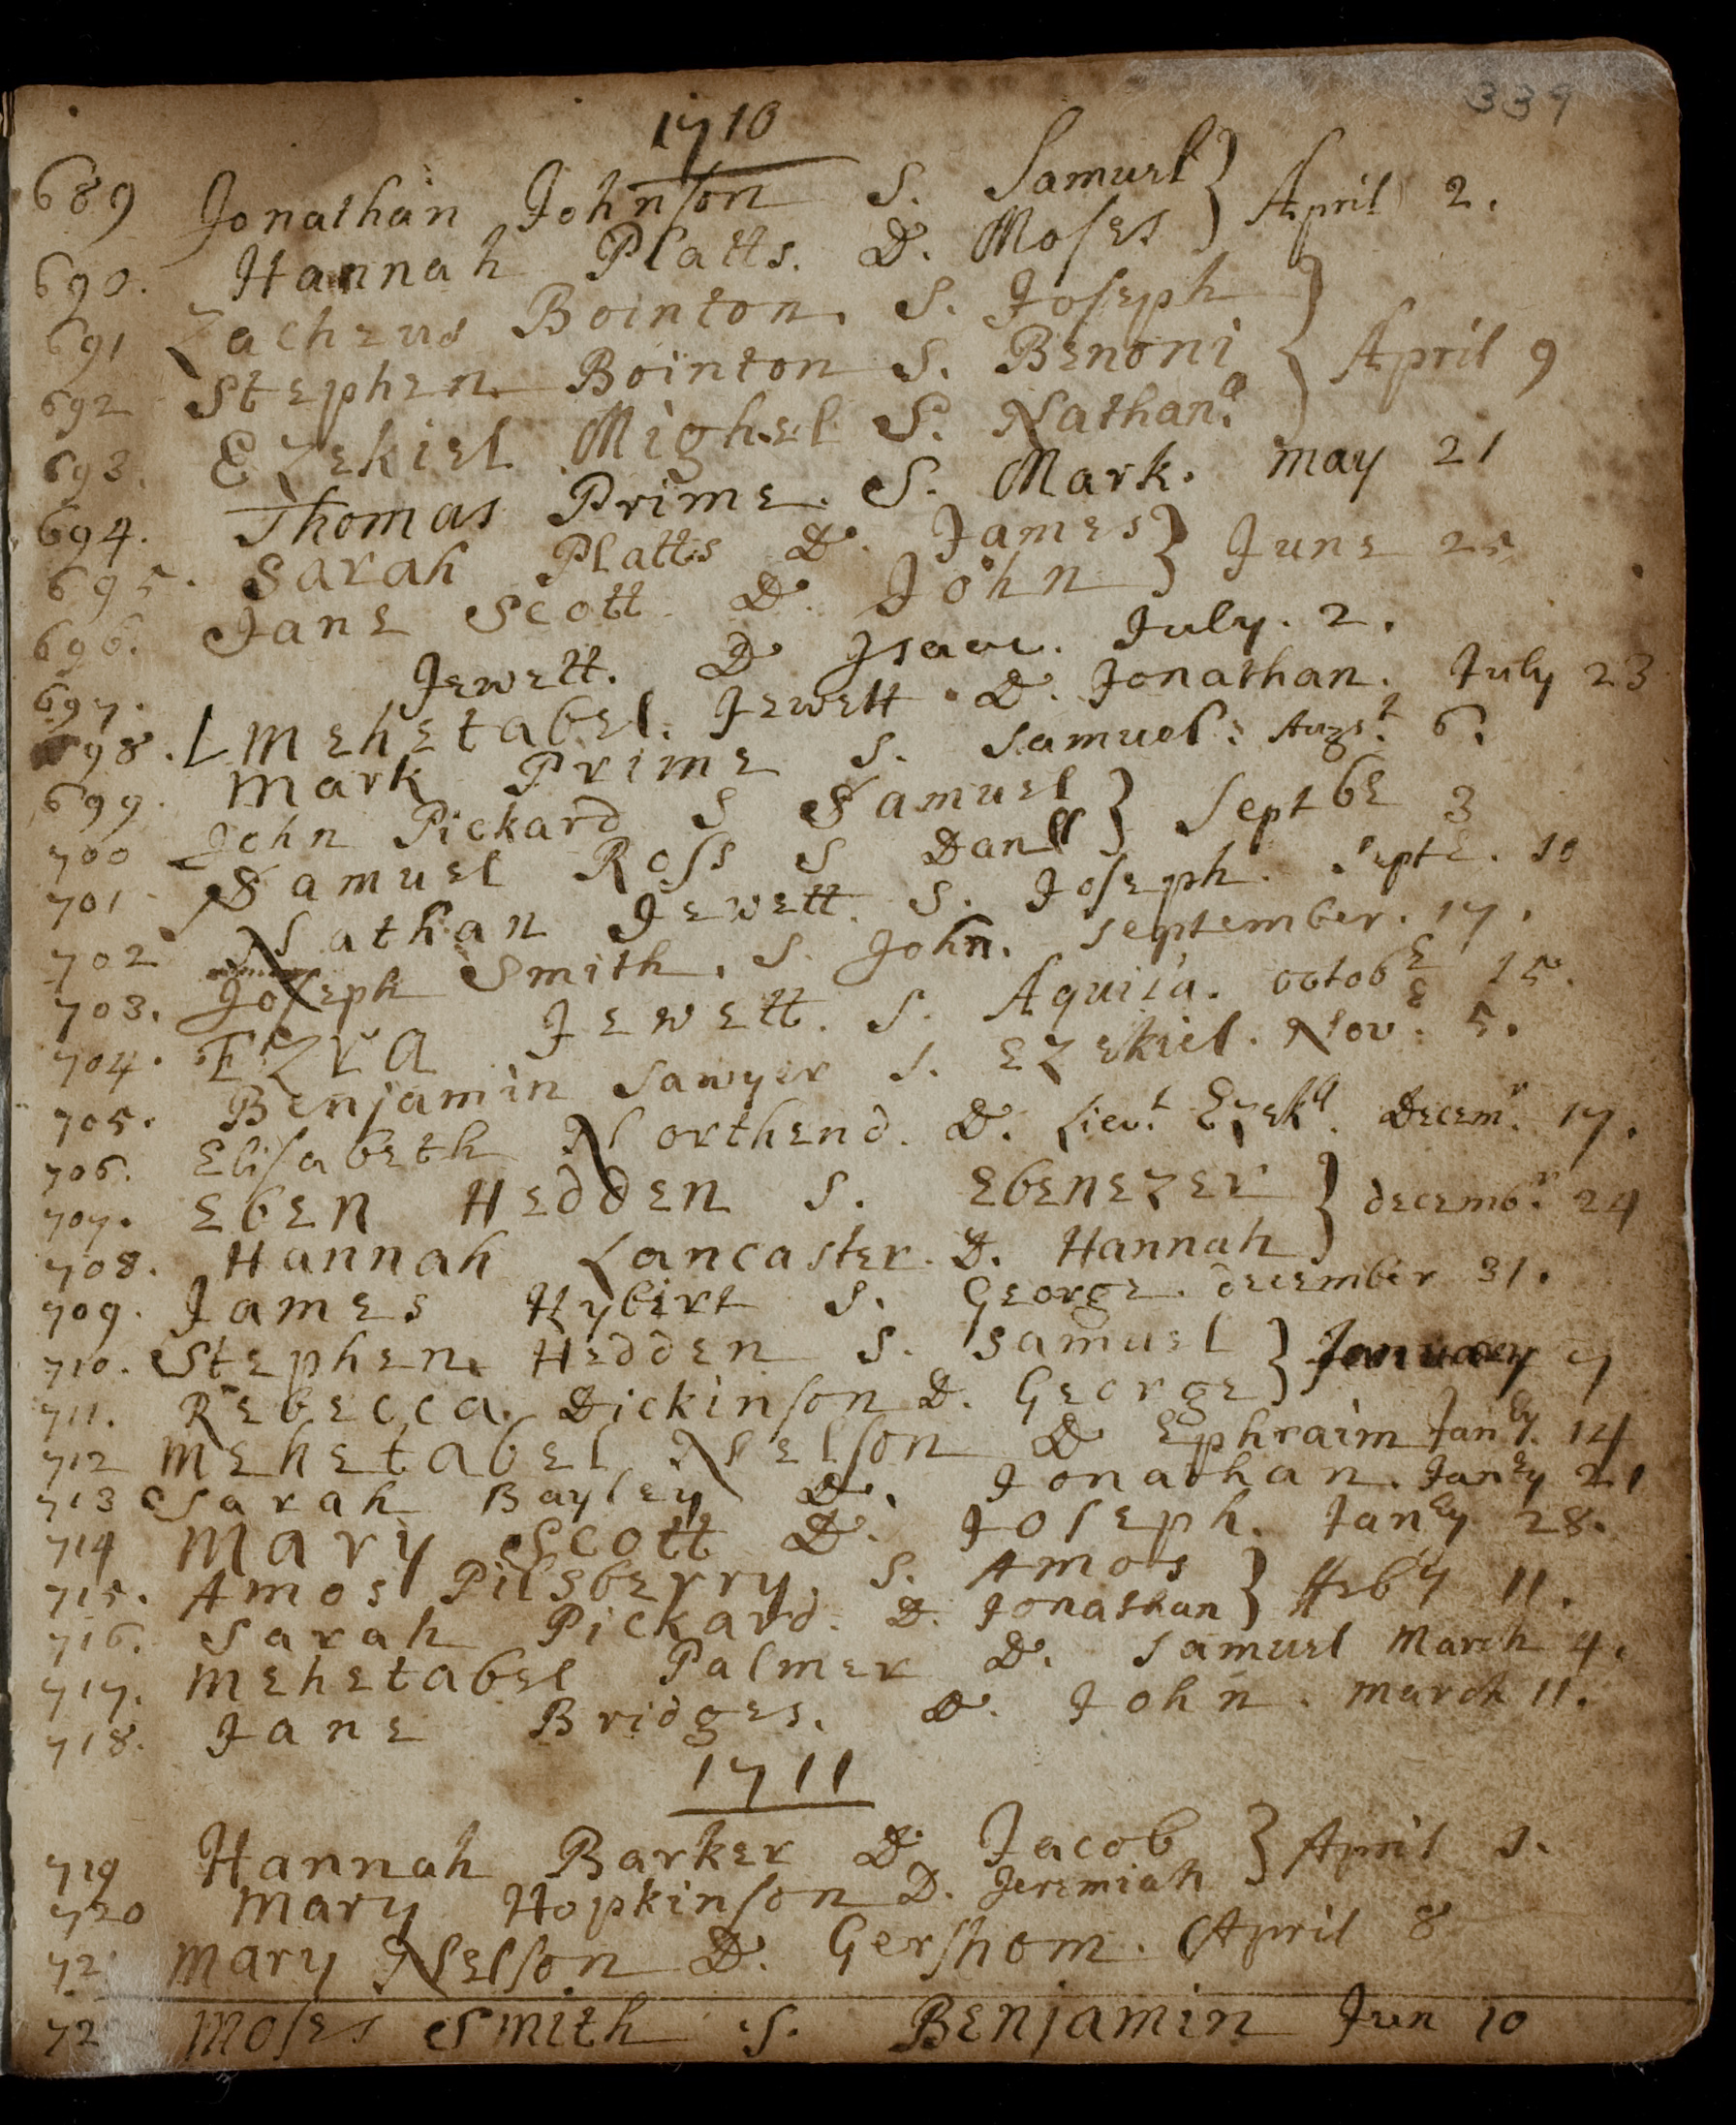 339
1710
689 Jonathan Johnson S. Samuel } April 2.
690. Hannah Platts. D. Moses
691 Zacheus Bointon. S. Joseph }
692 Stephen Bointon S. Benoni } April 9
693. Ezekiel Mighel S. Nathanll
694. Thomas Prime. S. Mark. May 21
695. Sarah Platts D. James } June 25
696. Jane Scott D. John
697. Jewett. D Isaac. July. 2.
698. Mehetabel. Jewett D. Jonathan. July 23
699. Mark Prime S. Samuel: Augst. 6.
700 John Pickard S Samuel } Septbe 3
701 Samuel Ross S Danll
702 Nathan Jewett. S. Joseph. Septe. 10
703. Joseph Smith. S. John. September. 17.
704. Ezra Jewett. S. Aquila. Octobe 15.
705. Benjamin Sawyer S. Ezekiel. Nove. 5.
706. Elisabeth Northend. D. Lieut. Ezekll. Decemr. 17.
707. Eben Hedden S. Ebenezer } decembr. 24
708. Hannah Lancaster. D. Hannah
709. James Hybert S. George. december 31.
710. Stephen Hedden S. Samuel } January 7
711. Rebecca. Dickinson D. George
712 Mehetabel Nelson D Ephraim Janey. 14
713 Sarah Bayley D. Jonathan. Janey 21
714 Mary Scott D. Joseph. Janey 28.
715. Amos Pilsberry. S. Amos } Feby 11.
716. Sarah Pickard. D. Jonathan
717. Mehetabel Palmer D. Samuel March 4.
718. Jane Bridges. D. John. March 11.
1711
719 Hannah Barker D Jacob } April 1.
720 Mary Hopkinson D. Jeremiah
72 Mary Nelson D. Gershom. April 8
72 Moses Smith S. Benjamin Jun 10